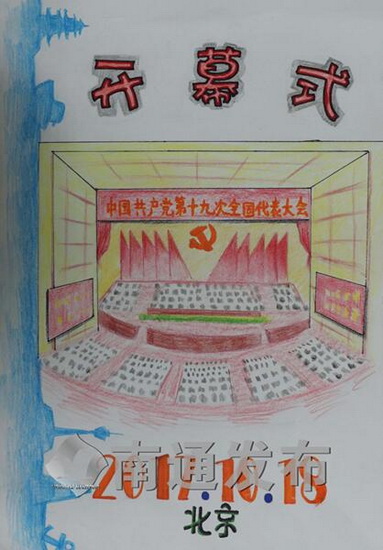 开幕式
中国共产党第十九次全国代表大会
南通发布
2017.10.18
北京